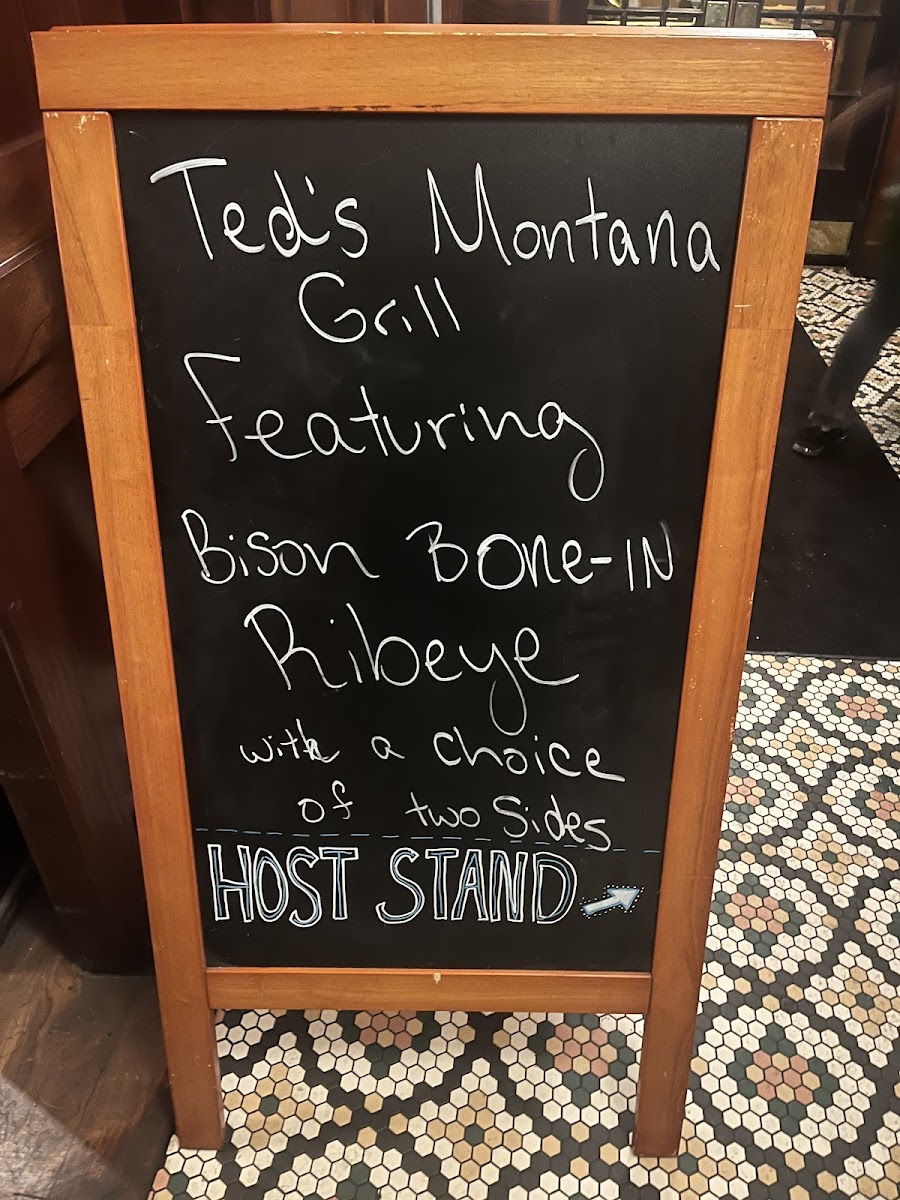 Ted's Montana
Grill
Featuring
Bison BOne-IN
Ribeye
with a choice
of two Sides
HOST STAND